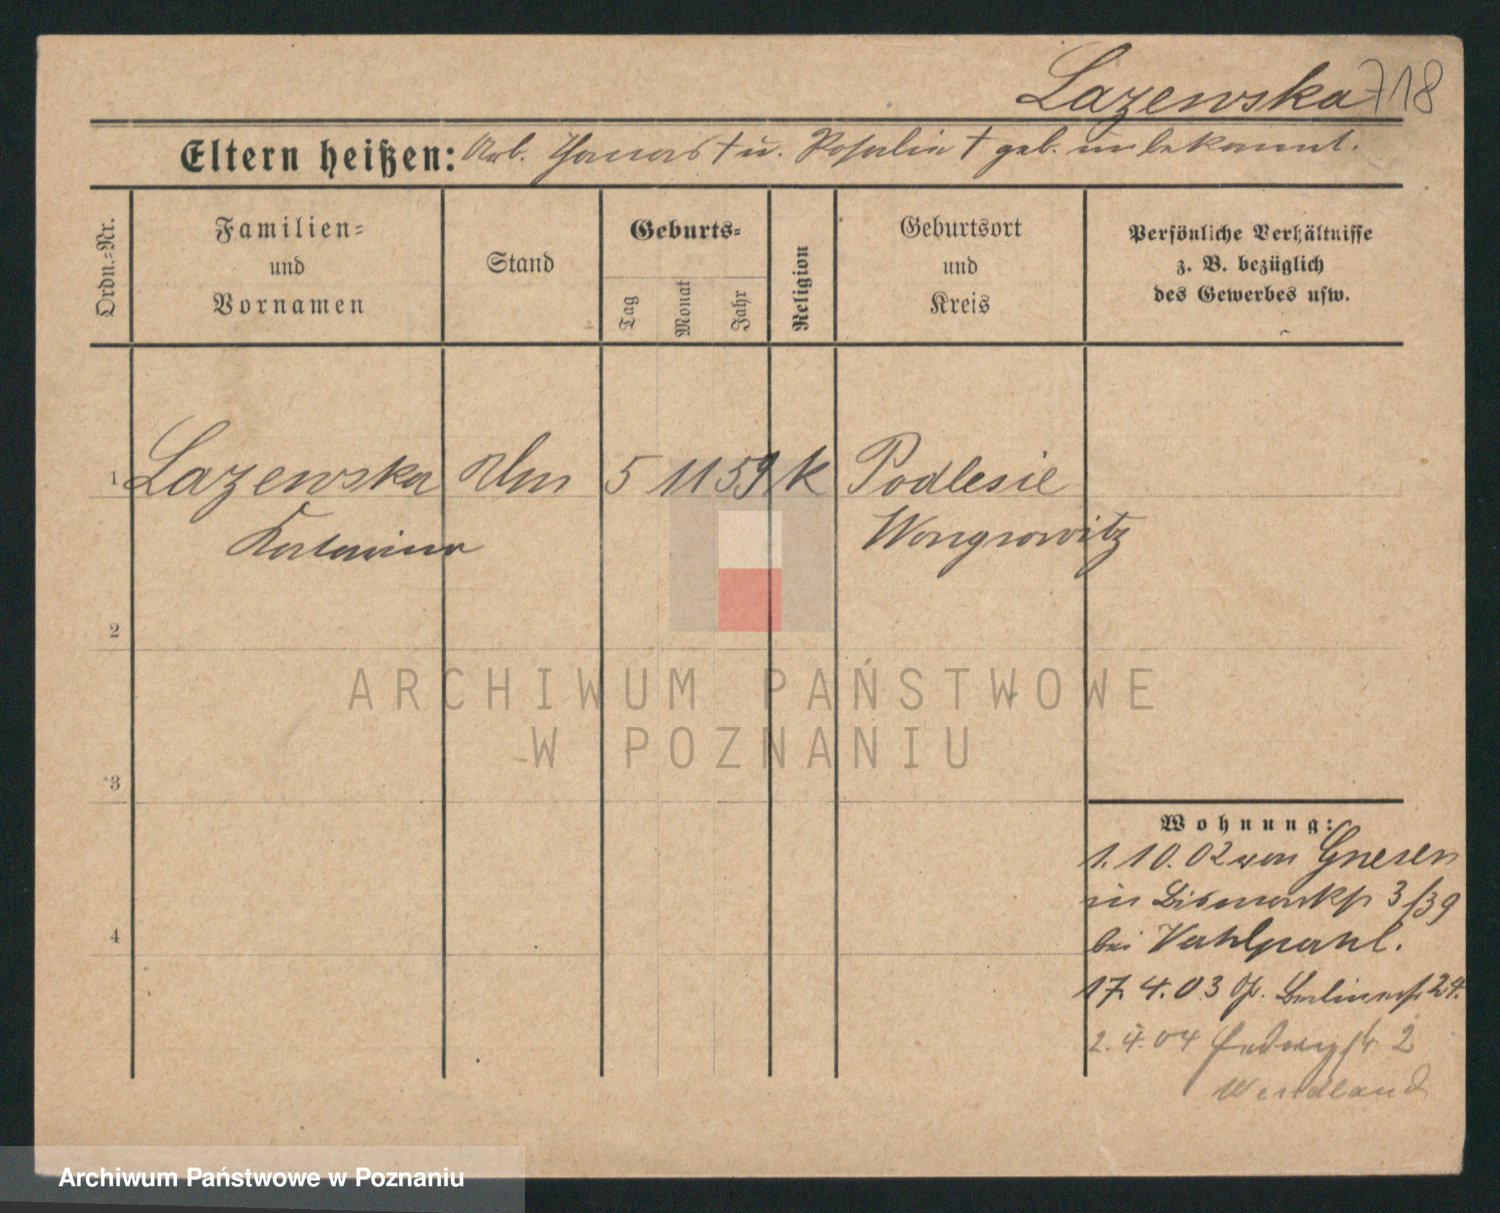 Lazewska 718
Eltern heißen: Arb. Thomas † u. Rosalie † geb. unbekannt.
Ordn.-Nr.
Familien-
und
Vornamen
Stand
Geburts-
Tag
Monat
Jahr
Religion
Geburtsort
und
Kreis
Persönliche Verhältnisse
z. B. bezüglich
des Gewerbes usw.
1 Lazewska 5 11 59 k Podlesie
Katarina Wongrowitz
2
ARCHIWUM PAŃSTWOWE
W POZNANIU
3
Wohnung:
1.10.02 von Gnesen
in Bismarkstr 3/39
bei Vahlpahl.
4
17.4.03 Berlinerstr 24.
2.4.04 Hedwigstr 2
Wendland
Archiwum Państwowe w Poznaniu